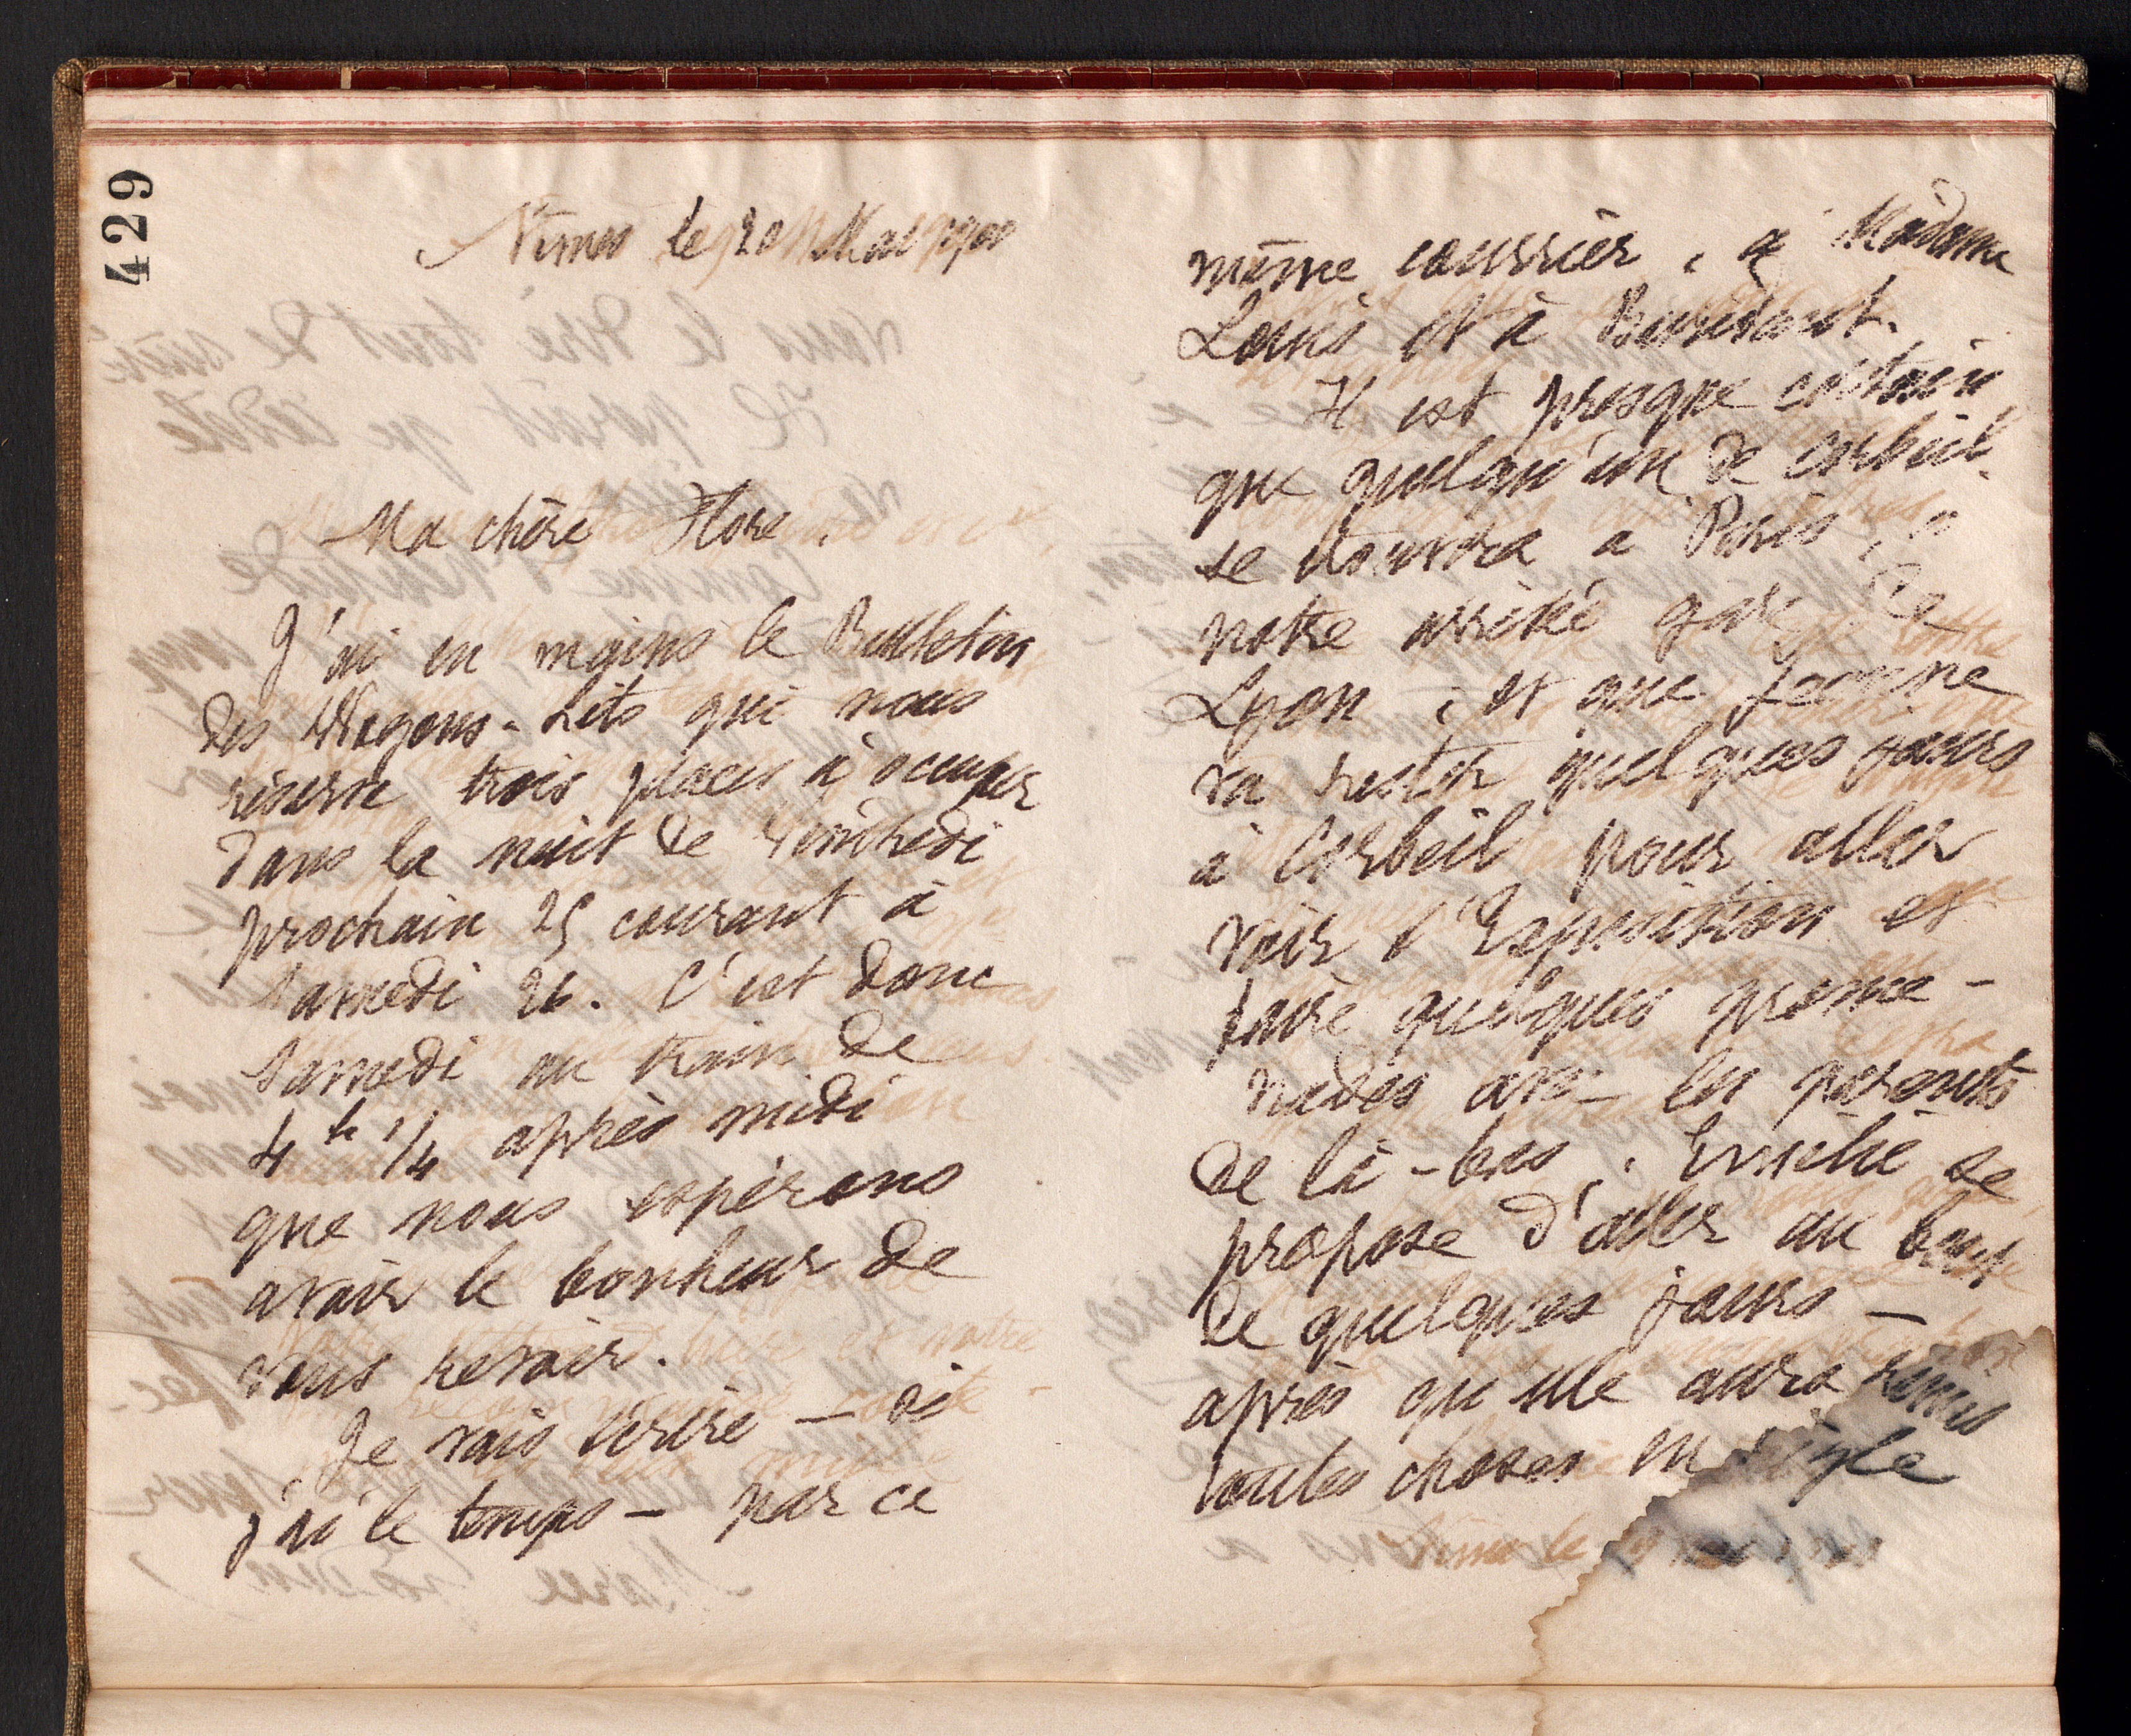 429
Nîmes le 20 Mai 1900
Ma chère Flore,
J'ai en mains le Bulletin
des Wagons-Lits qui nous
réserve trois places à occuper
dans la nuit de Vendredi
prochain 25 courant à
Samedi 26. C'est donc
Samedi au train de
4h 1/4 après midi
que nous espérons
avoir le bonheur de
vous revoir.
Je vais écrire — si
j'ai le temps — par ce
même courrier, à Madame
Louis et à
Il est presque certain
que quelqu'un de Corbeil
se trouvera à Paris, à
notre arrivée gare de
Lyon, et que Jeanne
va rester quelques jours
à Corbeil pour aller
voir l'Exposition et
faire quelques prome-
nades avec les parents
de là-bas. Emilie se
propose d'aller au bout
de quelques jours —
après qu'elle aura remis
toutes choses en règle